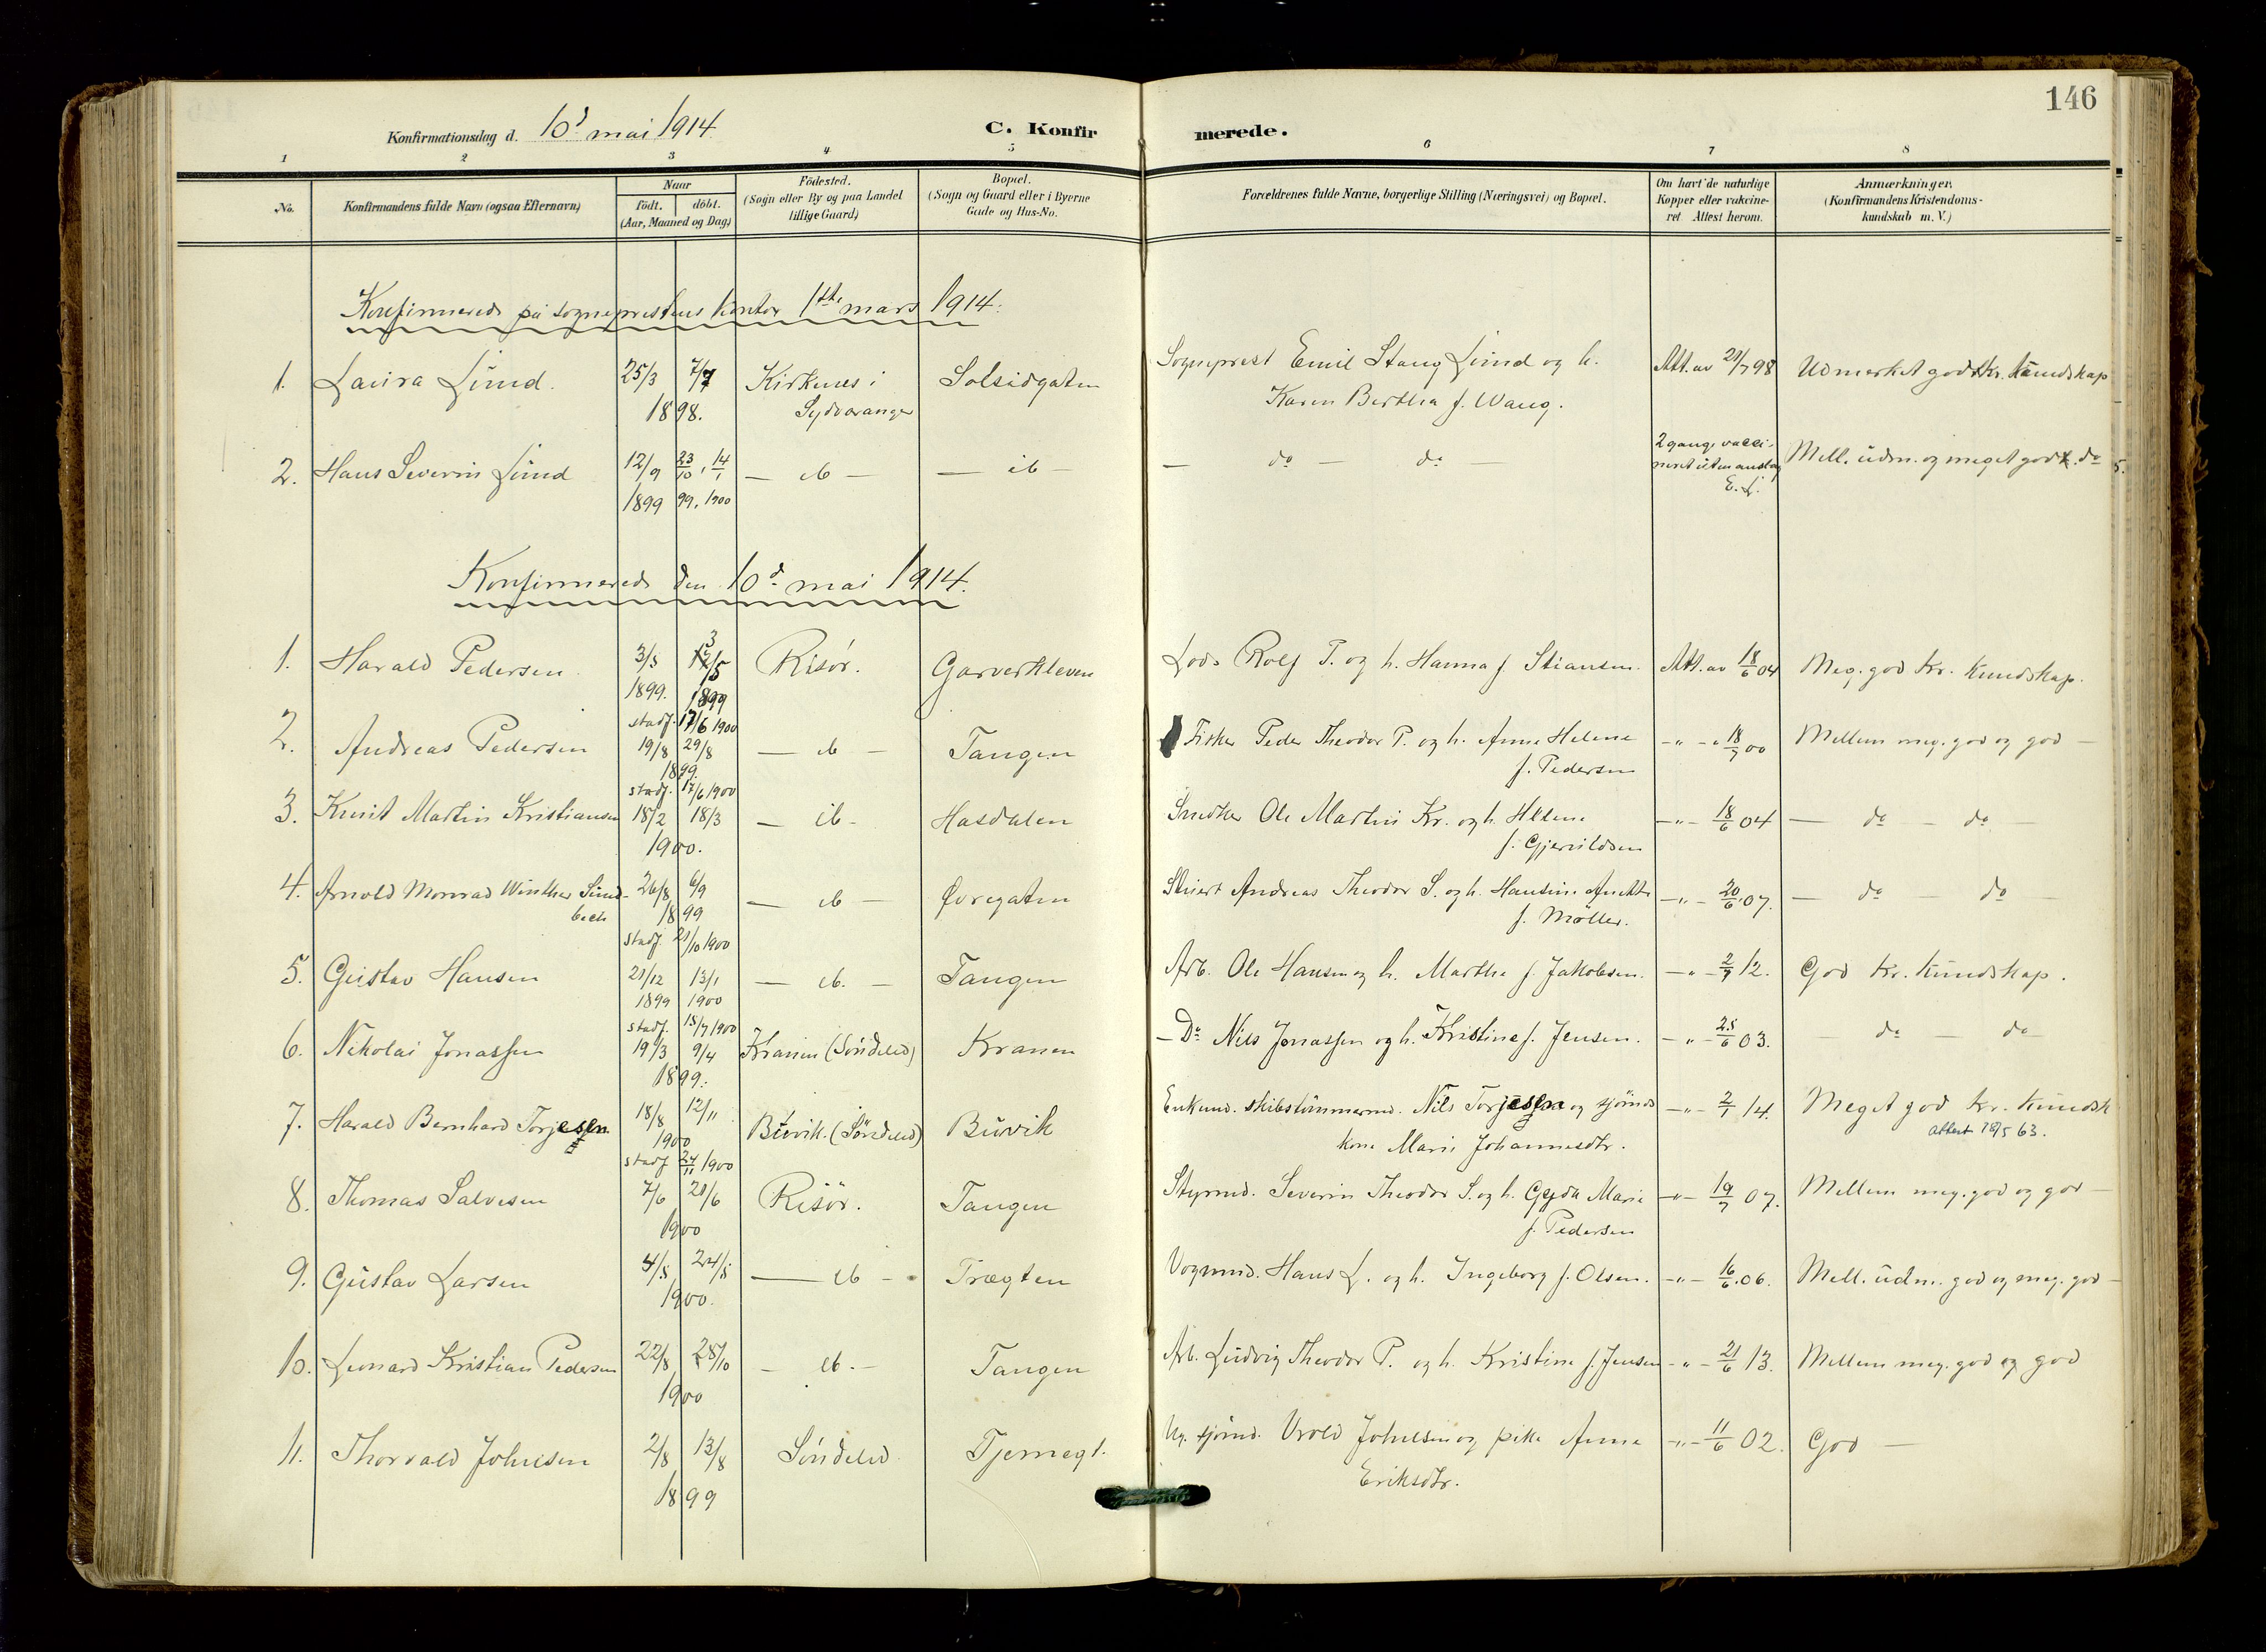 146
Konfirmationsdag d. 10d mai 1914.
C. Konfirmerede.
1 2 3 4 5 6 7 8
No.
Konfirmandens fulde Navn (ogsaa Efternavn)
Naar
Födt. döbt.
(Aar, Maaned og Dag)
Födested.
(Sogn eller By og paa Landet
tillige Gaard)
Bopæl.
(Sogn og Gaard eller i Byerne
Gade og Hus-No.
Forældrenes fulde Navne, borgerlige Stilling (Næringsvei) og Bopæl.
Om havt de naturlige
Kopper eller vakcine-
ret Attest herom.
Anmærkninger.
(Konfirmandens Kristendoms-
kundskab m. V.)
Konfirmerede på sogneprestens kontor 1ste mars 1914.
1. Laura Lund. 25/3 7/7 Kirkenes i Solsidgaten Sogneprest Emil Stang Lund og h. Att. av 21/7 98 Udmerket god kr. kundskap
1898. Sydvaranger Karen Bertha f. Wang.
2. Hans Severin Lund 12/9 23/10, 14/1 — ib — — ib — — do — do — 2 gange vacci-
neret uten anslag Mell. udm. og meget god. do
1899 99. 1900 E. L.
Konfirmerede den 10d mai 1914.
1. Harald Pedersen 3/3 Risør. Garverkleven Lods Rolf P. og h. Hanna f. Stiansen. Att. av 18/6 04 Meg. god kr. kundskap.
1899. 1899
stadf. 17/6 1900
2. Andreas Pedersen 19/8 29/8 — ib — Tangen Fisker Peder Theodor P. og h. Anne Helene — " — 18/7 00 Mellem meg. god og god —
1899. f. Pedersen
stadf. 17/6 1900
3. Knut Martin Kristiansen 18/2 18/3 — ib — Hasdalen Snedker Ole Martin Kr. og h. Helene — " — 18/6 04 — do — do —
1900. f. Gjeruldsen
4. Arnold Monrad Winther Sund- 26/8 6/9 — ib — Øvregaten Stuert Andreas Theodor S. og h. Hansine Anette — " — 20/6 07. — do — do —
bech 1899 f. Møller.
stadf. 21/10 1900
5. Gustav Hansen 21/12 13/1 — ib. — Tangen Arb. Ole Hansen og h. Marthe f. Jakobsen. — " — 2/7 12. God kr. kundskap.
1899 1900
stadf. 15/7 1900
6. Nikolai Jonassen 19/3 9/4 Kranen (Søndeled) Kranen — Do Nils Jonassen og h. Kristine f. Jensen. — " — 25/6 03. — do — do —
1899.
7. Harald Bernhard Torjesen. 18/8 12/11 Buvik. (Søndeled) Buvik Enkemd. skibstømmermd. Nils Torjesen og sjømds — " — 2/1 14. Meget god kr. kundsk
1900 kone Marie Johannesdtr. attest 18/5 63.
stadf 24/11 1900
8. Thomas Salvesen 7/6 21/6 Risør. Tangen Styrmd. Severin Theodor S. og h. Gyda Marie — " — 19/7 07. Mellem meg. god og god —
1900 f. Pedersen
9. Gustav Larsen 4/5 24/5 — ib — Trægten Vognmd. Hans L. og h. Ingeborg f. Olsen. — " — 16/6 06. Mell. udm. god og meg. god —
1900.
10. Leonard Kristian Pedersen 22/8 28/10 — ib. — Tangen Arb. Ludvig Theodor P. og h. Kristine f. Jensen — " — 21/6 13. Mellem meg. god og god
1900
11. Thorvald Johnsen 2/8 13/8 Søndeled Tjernegt. Ug. sjømd. Vrold Johnsen og pike Anne — " — 11/6 02. God —
1899 Eriksdtr.